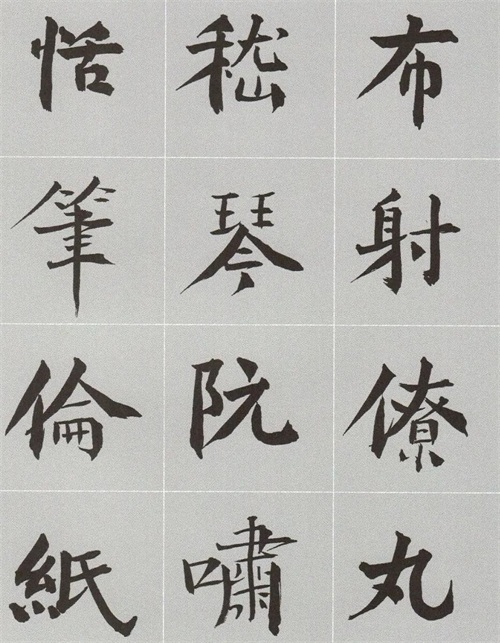 布射僚丸
嵇琴阮嘯
恬筆倫紙